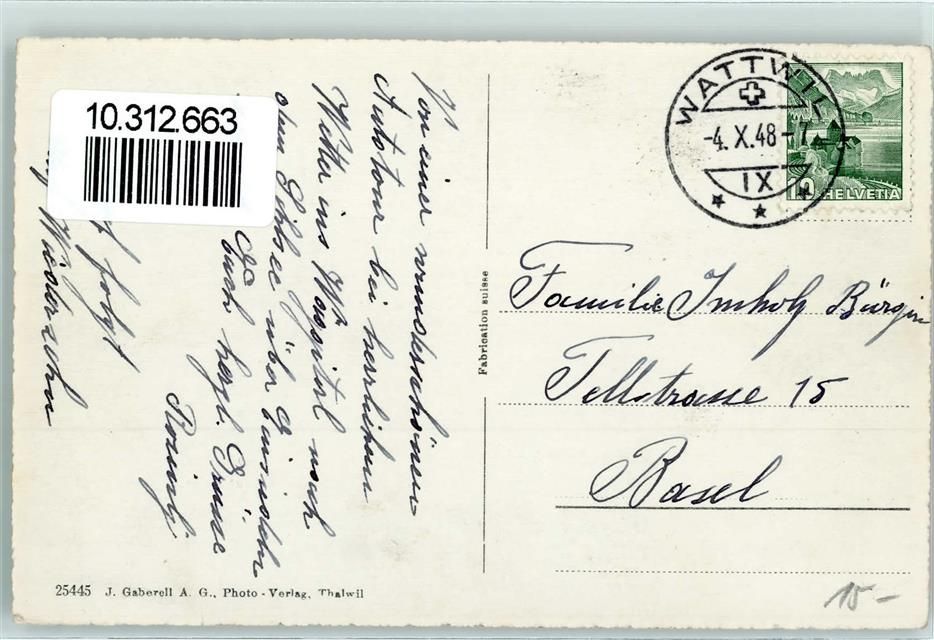 10.312.663
WATTWIL
-4. X. 48 - 7
IX
10 HELVETIA
Von einer wunderschönen
Autotour bei herrlichem
Wetter ins Wäggital nach
dem Sihlsee über Einsiedeln
Euch herzl. Grüsse
folgt
Familie Imhof Bürgin
Tellstrasse 15
Basel
Fabrication suisse
25445 J. Gaberell A. G., Photo-Verlag, Thalwil
15.-